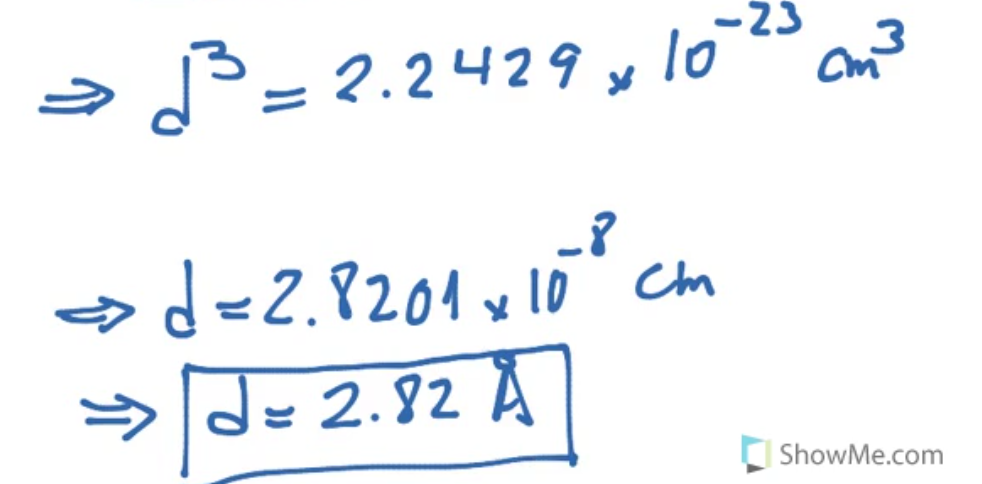 ⇒ d³ = 2.2429 × 10⁻²³ cm³
⇒ d = 2.8201 × 10⁻⁸ cm
⇒ d = 2.82 Å
ShowMe.com